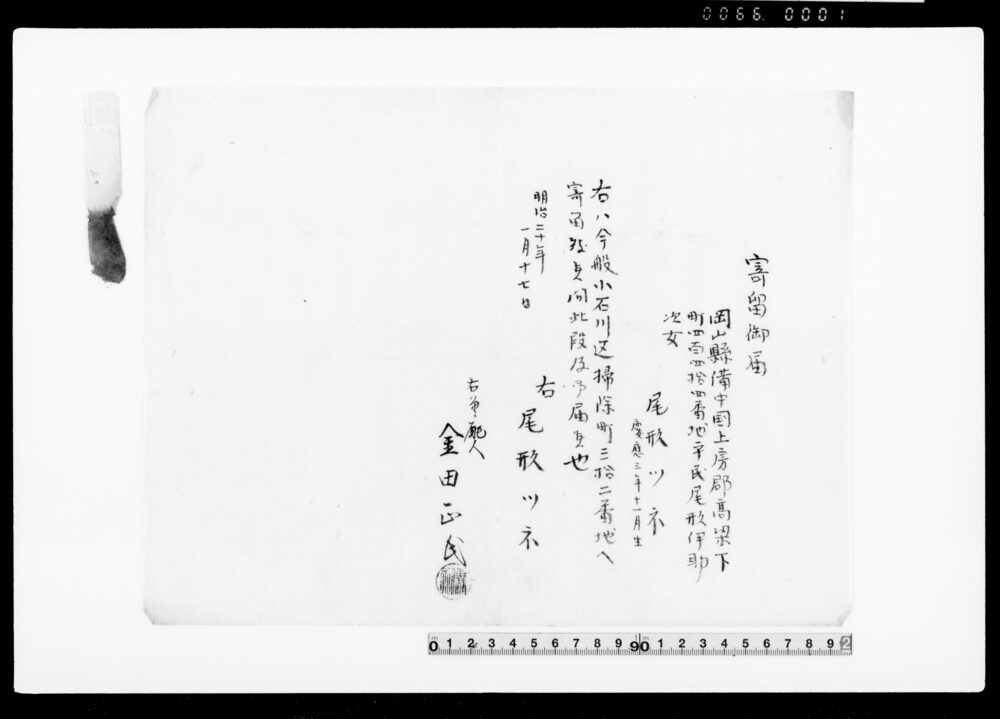 0066. 0001
寄留御届
岡山縣備中国上房郡高梁下
町四百四拾四番地平民尾形伊助
次女
尾形ツネ
慶應三年十一月生
右ハ今般小石川区掃除町三拾二番地ヘ
寄留致候間此段及御届候也
明治二十年
一月十七日
右
尾形ツネ
右
人
金田正民
0 1 2 3 4 5 6 7 8 9 10 1 2 3 4 5 6 7 8 9 2